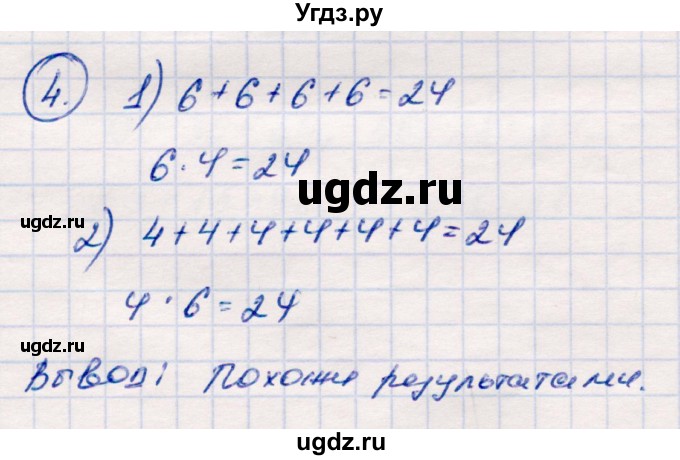 Угдз.ру
4. 1) 6+6+6+6=24
6·4=24
ugdz.ru
ugdz.ru
2) 4+4+4+4+4+4=24
4·6=24
ugdz.ru
Вывод: Похожи результатами.
ugdz.ru